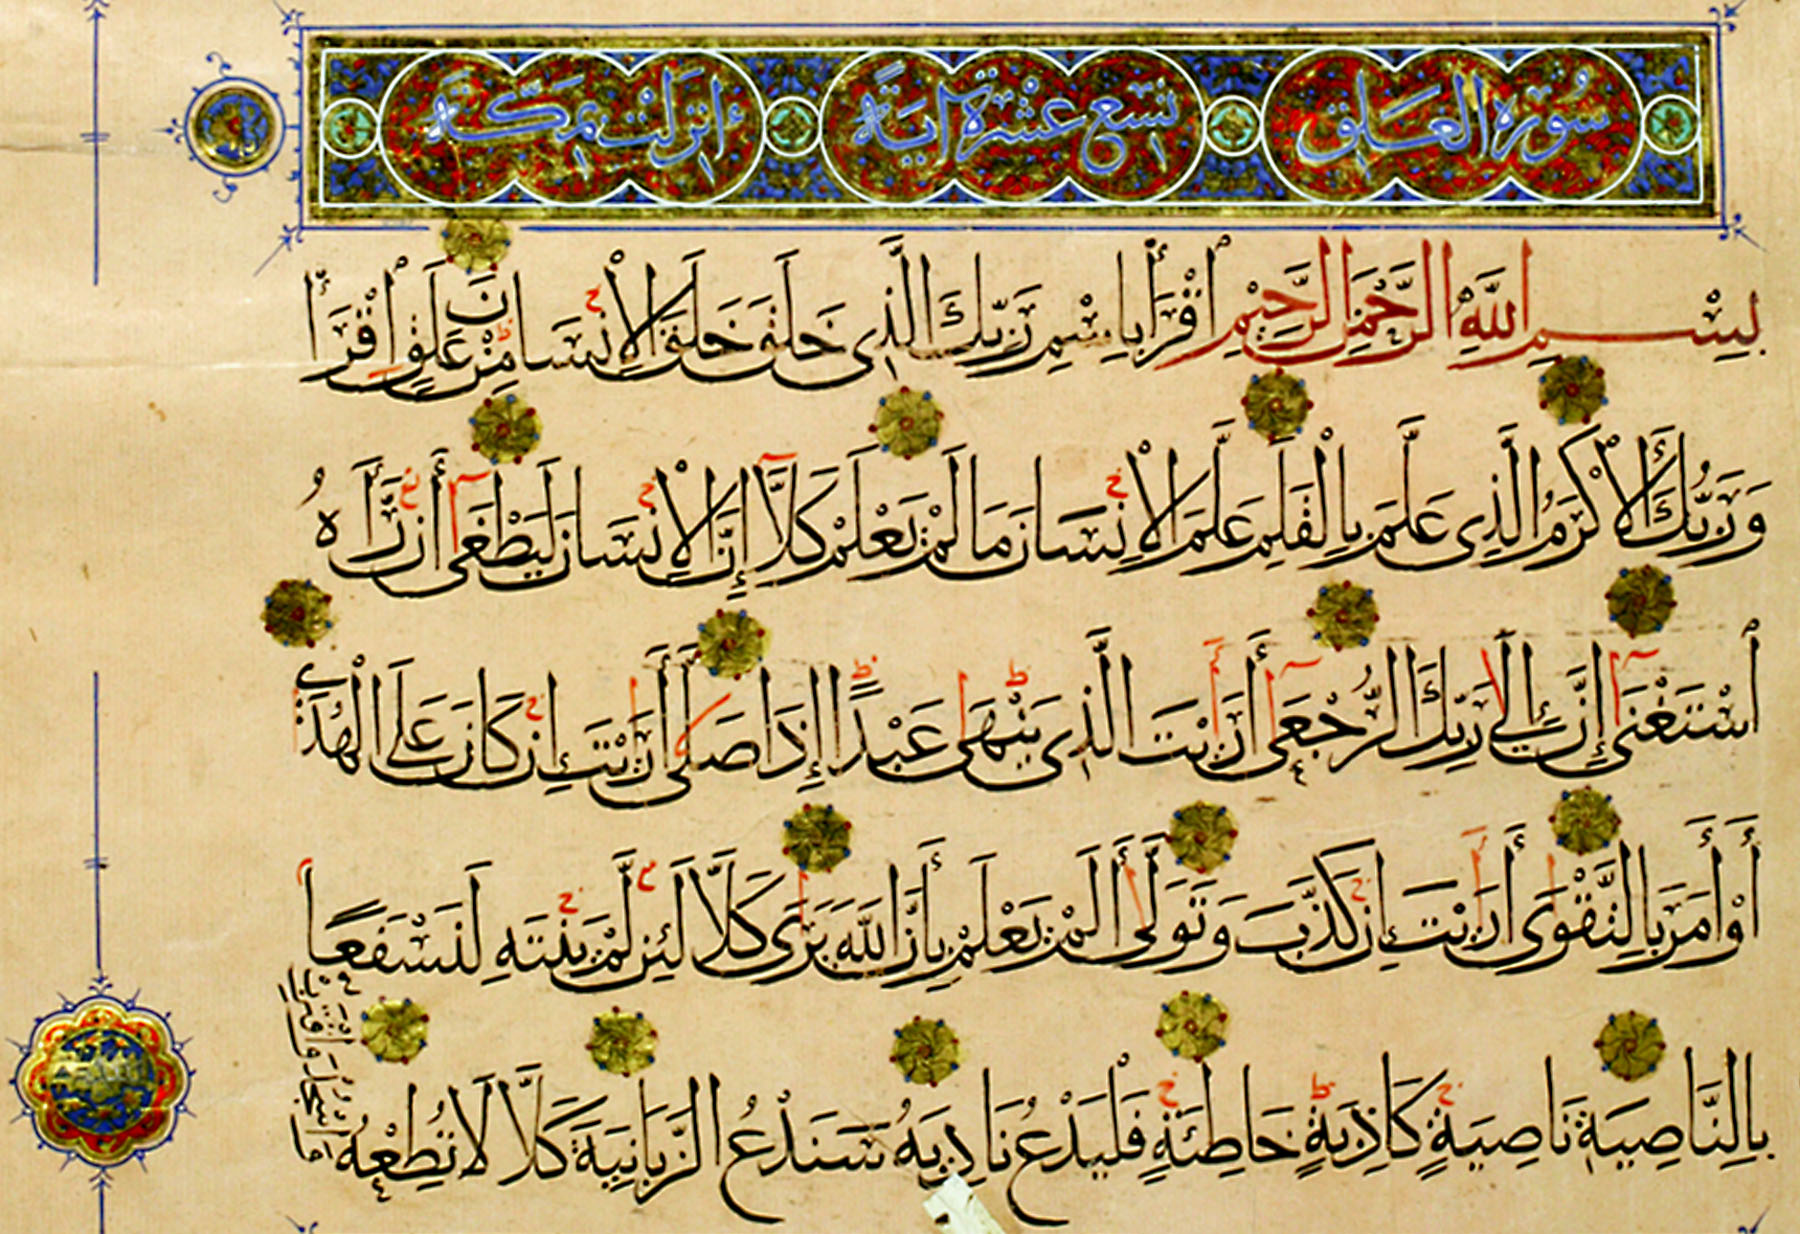 سُورة العلق تسع عشرة اية انزلت بمكة
بِسْمِ اللَّهِ الرَّحْمَنِ الرَّحِيْمِ اقْرَأْ بِاسْمِ رَبِّكَ الَّذِي خَلَقَ خَلَقَ الْإِنْسَانَ مِنْ عَلَقٍ اقْرَأْ
وَرَبُّكَ الْأَكْرَمُ الَّذِي عَلَّمَ بِالْقَلَمِ عَلَّمَ الْإِنْسَانَ مَا لَمْ يَعْلَمْ كَلَّا إِنَّ الْإِنْسَانَ لَيَطْغَى أَنْ رَّآهُ
اسْتَغْنَى إِنَّ إِلَى رَبِّكَ الرُّجْعَى أَرَأَيْتَ الَّذِي يَنْهَى عَبْدًا إِذَا صَلَّى أَرَأَيْتَ إِنْ كَانَ عَلَى الْهُدَى
أَوْ أَمَرَ بِالتَّقْوَى أَرَأَيْتَ إِنْ كَذَّبَ وَتَوَلَّى أَلَمْ يَعْلَمْ بِأَنَّ اللَّهَ يَرَى كَلَّا لَئِنْ لَّمْ يَنْتَهِ لَنَسْفَعًا
بِالنَّاصِيَةِ نَاصِيَةٍ كَاذِبَةٍ خَاطِئَةٍ فَلْيَدْعُ نَادِيَهُ سَنَدْعُ الزَّبَانِيَةَ كَلَّا لَا تُطِعْهُ
وَاسْجُدْ وَاقْتَرِبْ